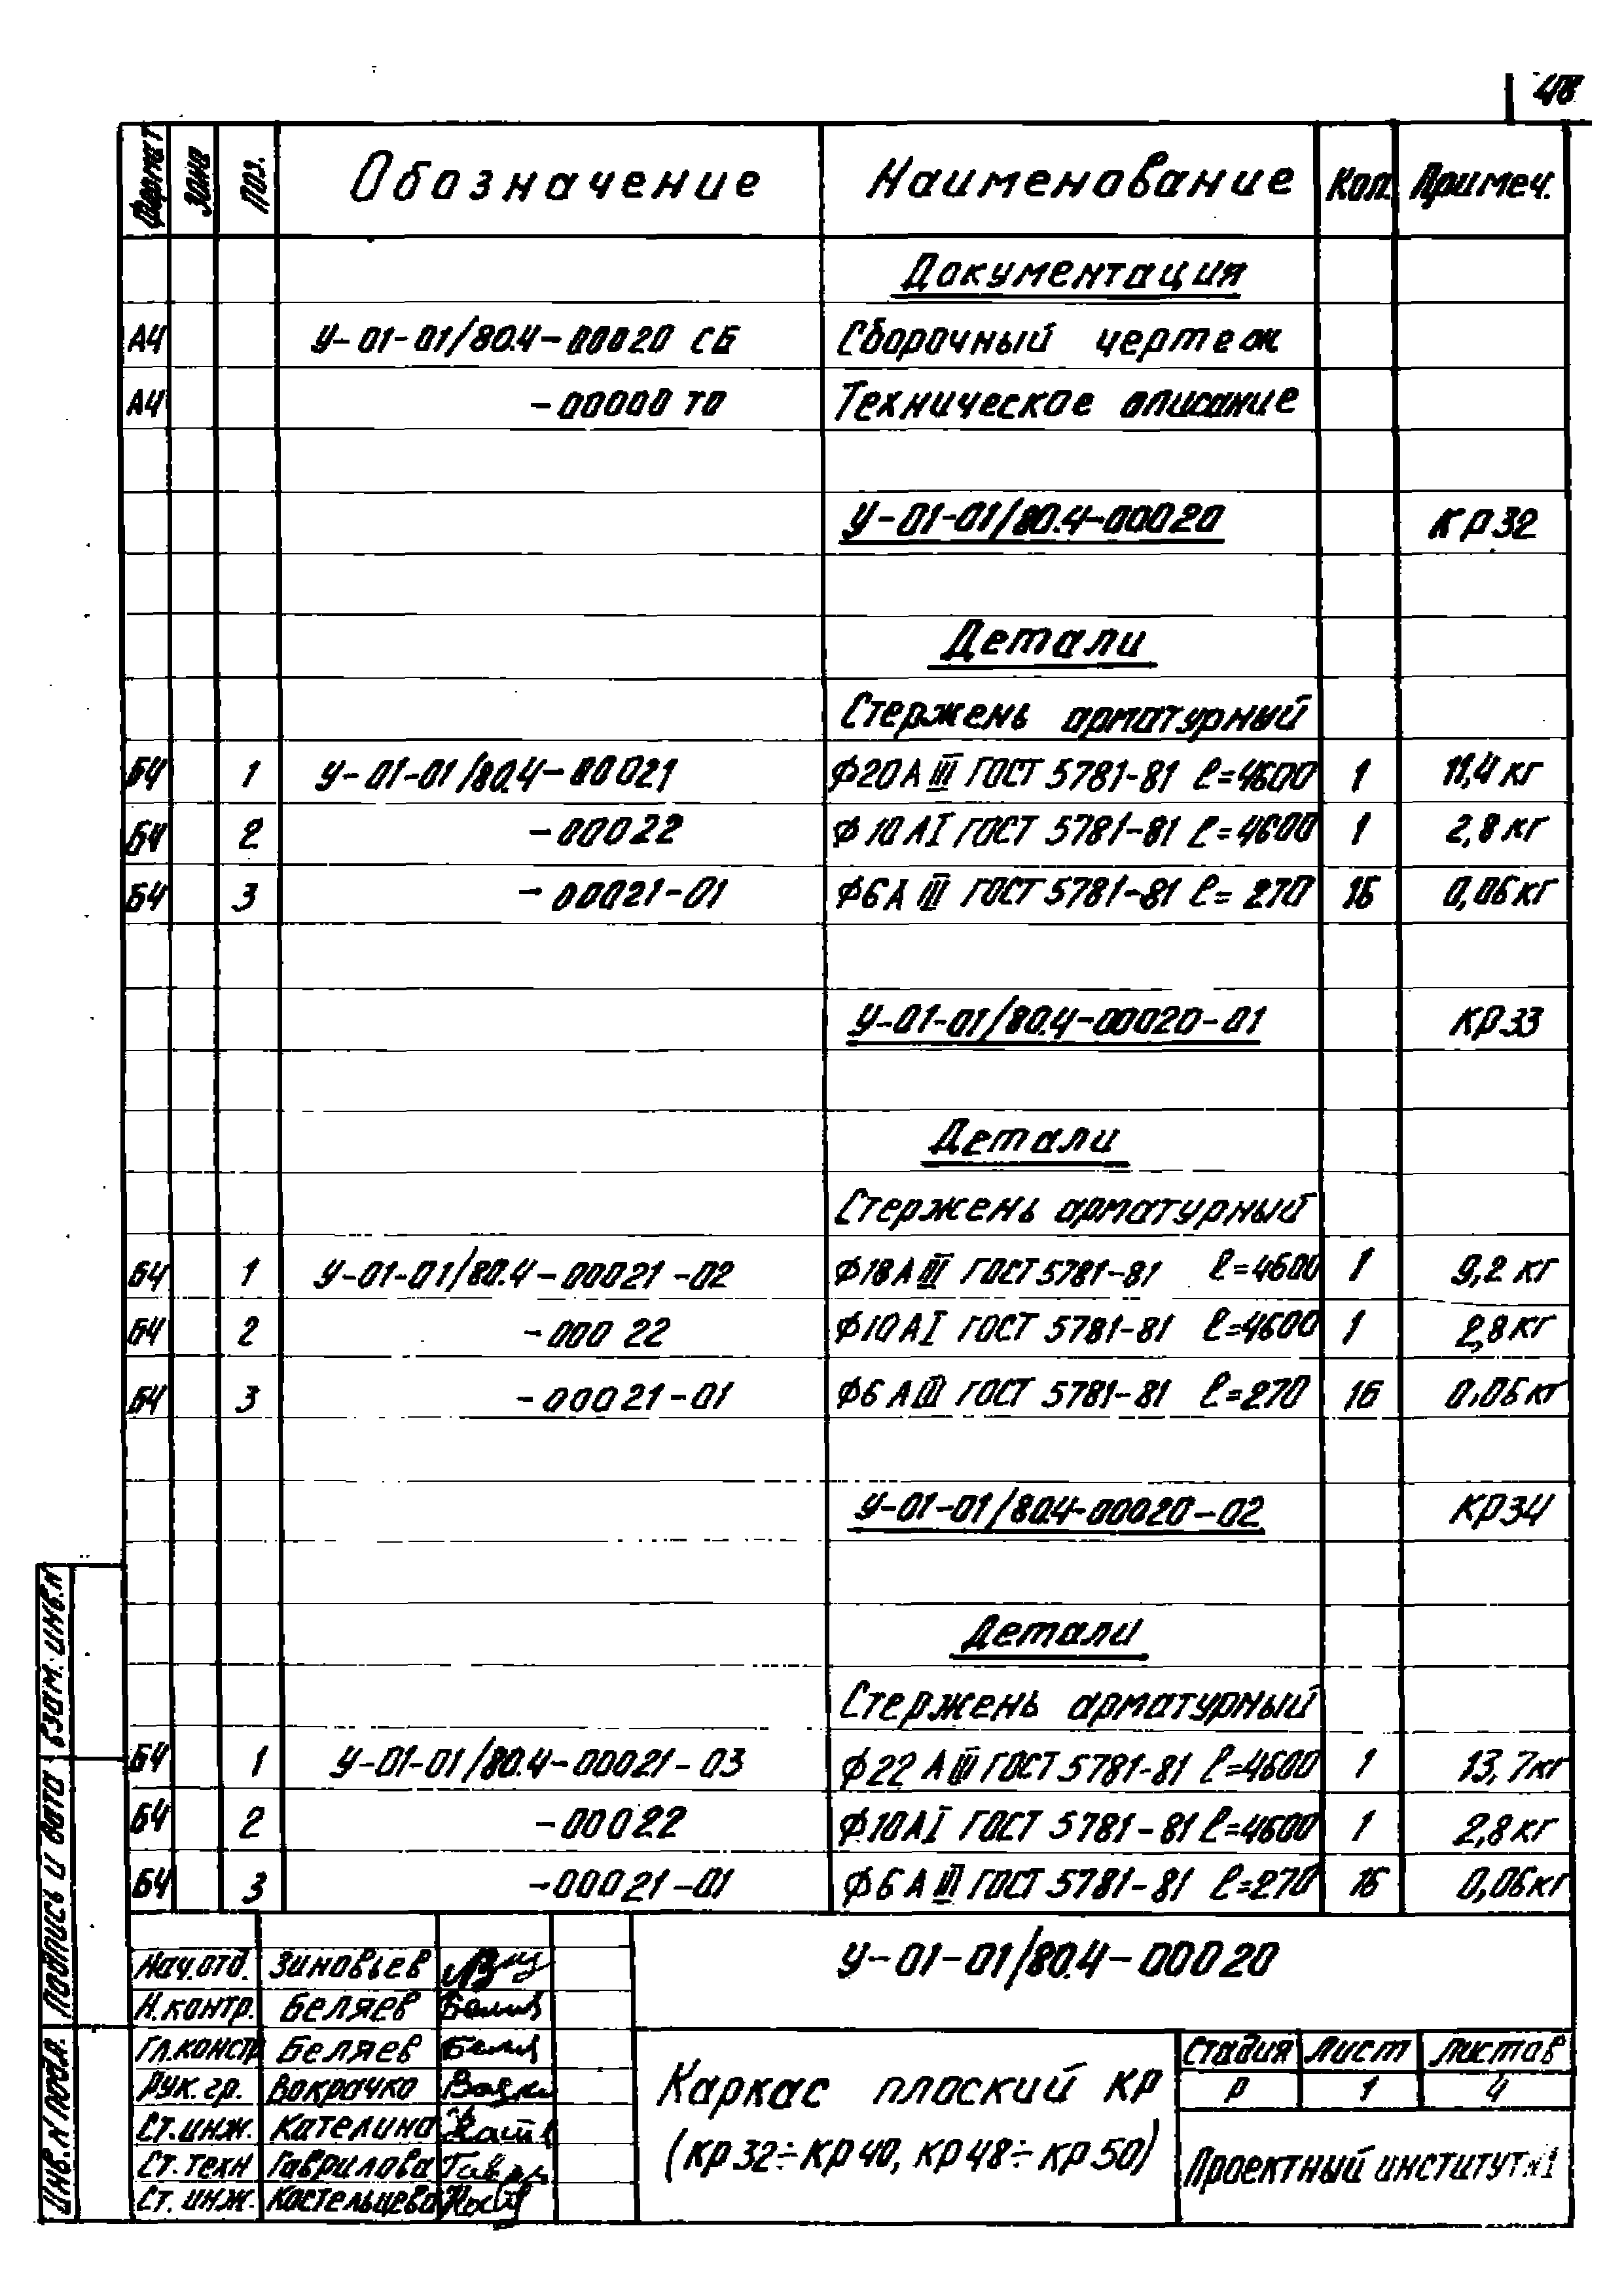 48
Формат Зона Поз. Обозначение Наименование Кол. Примеч.
Документация
А4 У-01-01/80.4-00020 СБ Сборочный чертеж
А4 -00000 ТО Техническое описание
У-01-01/80.4-00020 КР32
Детали
Стержень арматурный
Б4 1 У-01-01/80.4-00021 Ф20АIII ГОСТ 5781-81 ℓ=4600 1 11,4 кг
Б4 2 -00022 Ф10АI ГОСТ 5781-81 ℓ=4600 1 2,8 кг
Б4 3 -00021-01 Ф6АIII ГОСТ 5781-81 ℓ=270 16 0,06 кг
У-01-01/80.4-00020-01 КР33
Детали
Стержень арматурный
Б4 1 У-01-01/80.4-00021-02 Ф18АIII ГОСТ 5781-81 ℓ=4600 1 9,2 кг
Б4 2 -00022 Ф10АI ГОСТ 5781-81 ℓ=4600 1 2,8 кг
Б4 3 -00021-01 Ф6АIII ГОСТ 5781-81 ℓ=270 16 0,06 кг
У-01-01/80.4-00020-02 КР34
Детали
Стержень арматурный
Б4 1 У-01-01/80.4-00021-03 Ф22АIII ГОСТ 5781-81 ℓ=4600 1 13,7 кг
Б4 2 -00022 Ф10АI ГОСТ 5781-81 ℓ=4600 1 2,8 кг
Б4 3 -00021-01 Ф6АIII ГОСТ 5781-81 ℓ=270 16 0,06 кг
Взам. инв. N
Подпись и дата
Инв. N подл.
Нач.отд. Зиновьев
Н.контр. Беляев
Гл.констр Беляев
Рук. гр. Вокрачко
Ст.инж. Кателина
Ст. техн Гаврилова
Ст. инж. Костельцева
У-01-01/80.4-00020
Каркас плоский КР
(КР32÷КР40, КР48÷КР50)
Стадия Лист Листов
Р 1 4
Проектный институт №1